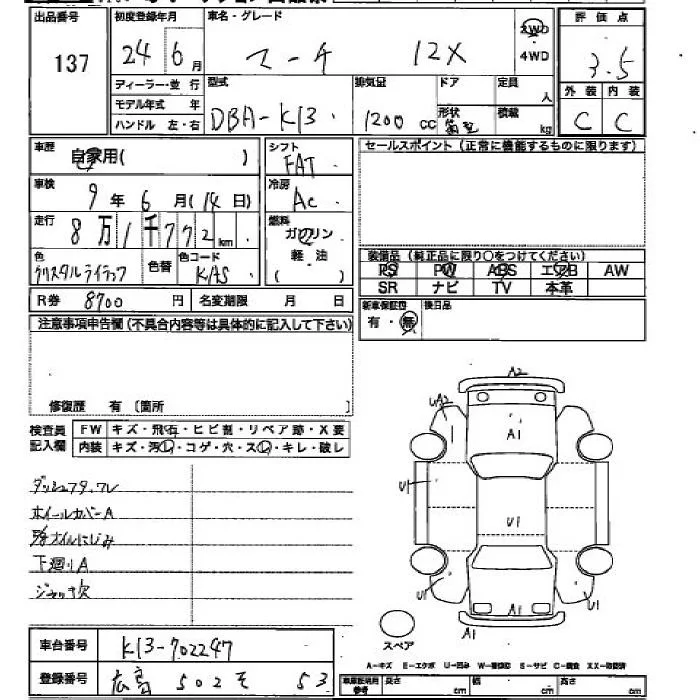 出品番号 初度登録年月 車名・グレード 評価点
137 24年6月 マーチ 12X 2WD 4WD 3.5
ディーラー・並行 型式 排気量 ドア 定員 人 外装 内装
モデル年式 年 DBA-K13 1200cc 形状 積載 kg C C
ハンドル 左・右
車歴 自家用( ) シフト FAT セールスポイント(正常に機能するものに限ります)
車検 9年6月(14日) 冷房 AC
走行 8万1千772km 燃料 ガソリン 軽油 ( )
色 クリスタルライラック 色替 色コード KAS
装備品(純正品に限り○をつけてください)
PS PW ABS エアB AW
SR ナビ TV 本革
R券 8700円 名変期限 月 日
新車保証書 有・無 後日品
注意事項申告欄(不具合内容等は具体的に記入して下さい)
修復歴 有〔箇所 〕
検査員記入欄 FW キズ・飛石・ヒビ割・リペア跡・X要
内装 キズ・汚れ・コゲ・穴・スレ・キレ・破レ
ホイールカバーA
下廻りA
ジャッキ欠
A2
UA2
A1
U1
U1
U1
A1
U1
A1
スペア
A-キズ E-エクボ U-凹み S-サビ C-腐食
車台番号 K13-702247
登録番号 広島 502 モ 53
参考 長さ cm 幅 cm 高さ cm